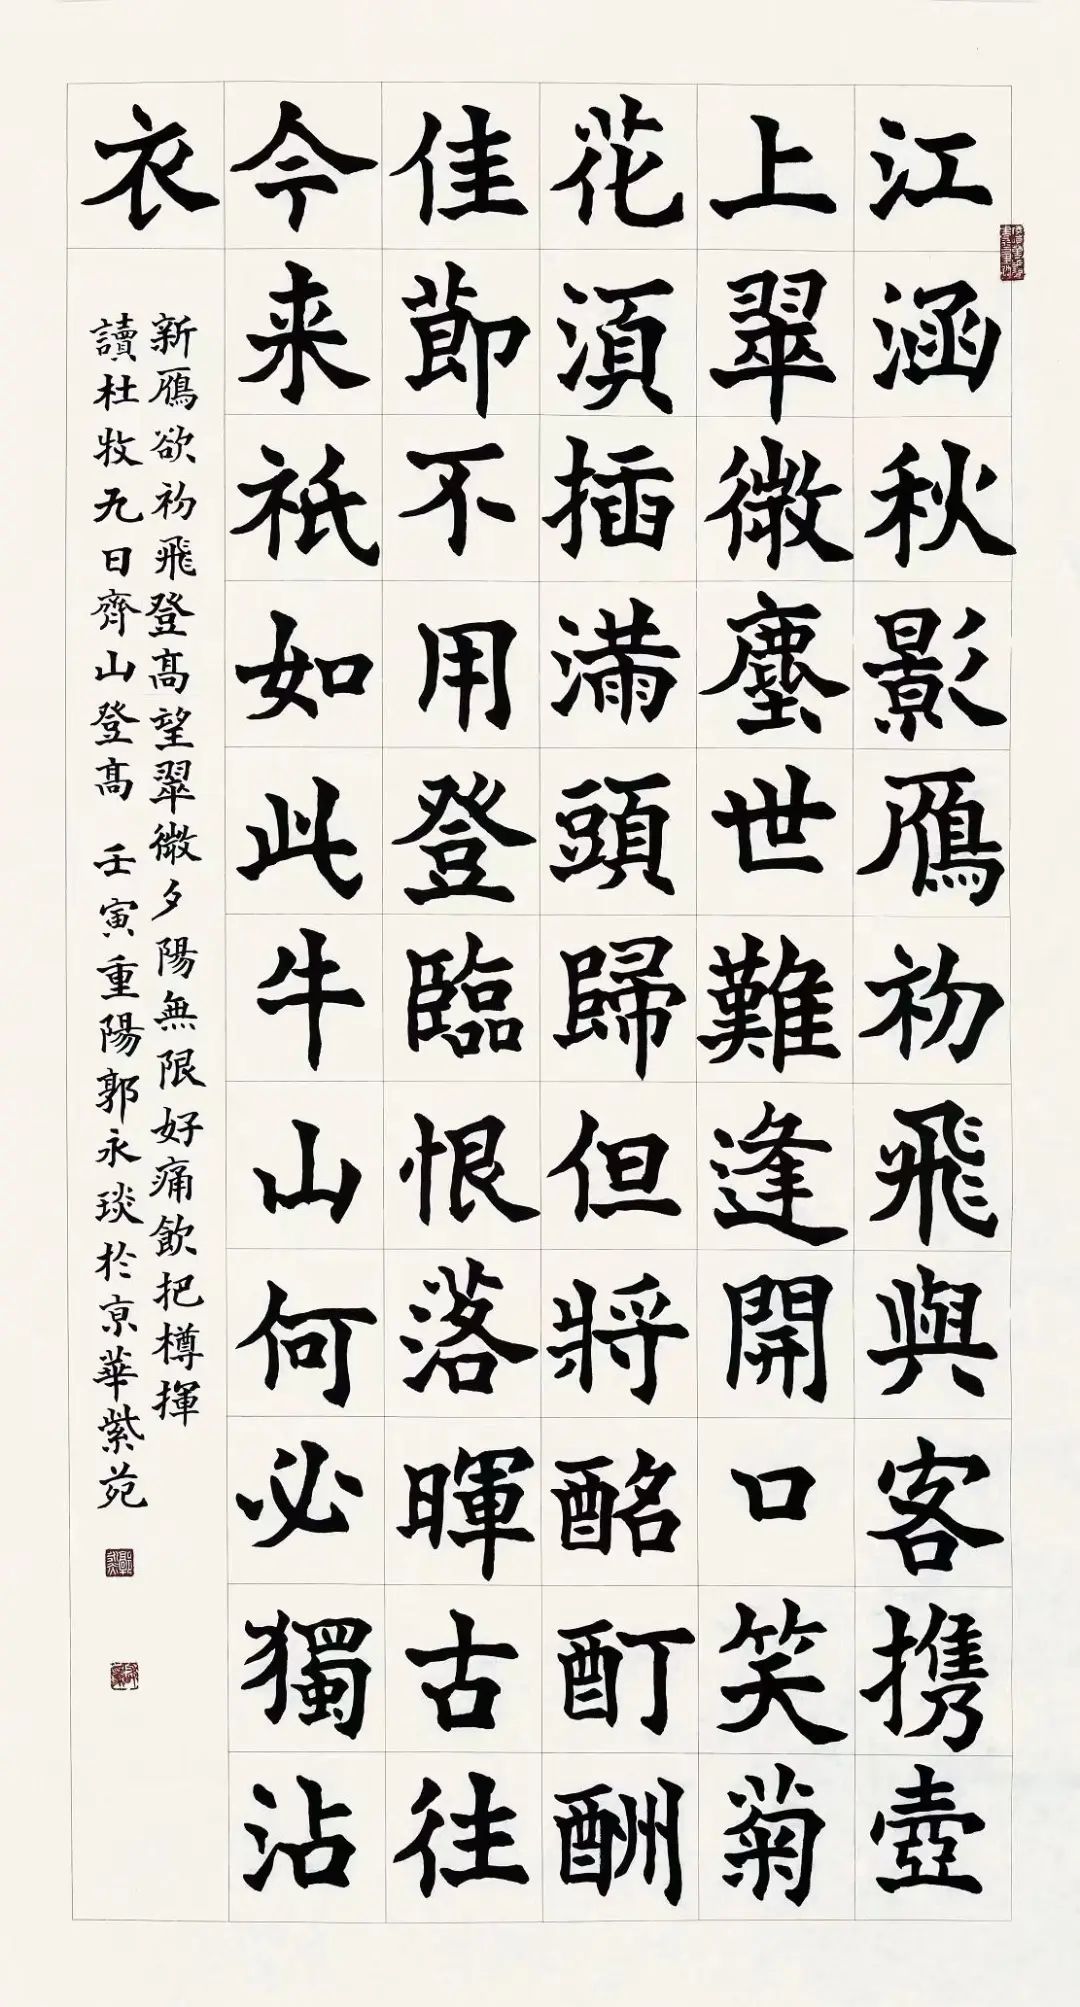 江涵秋影鴈初飛與客携壺
上翠微塵世難逢開口笑菊
花湏插滿頭歸但將酩酊酬
佳莭不用登臨恨落暉古往
今来祇如此牛山何必獨沾
衣
新鴈欲初飛登髙望翠微夕陽無限好痛飲把樽揮
讀杜牧九日齊山登髙 壬寅重陽郭永琰於亰華紫苑